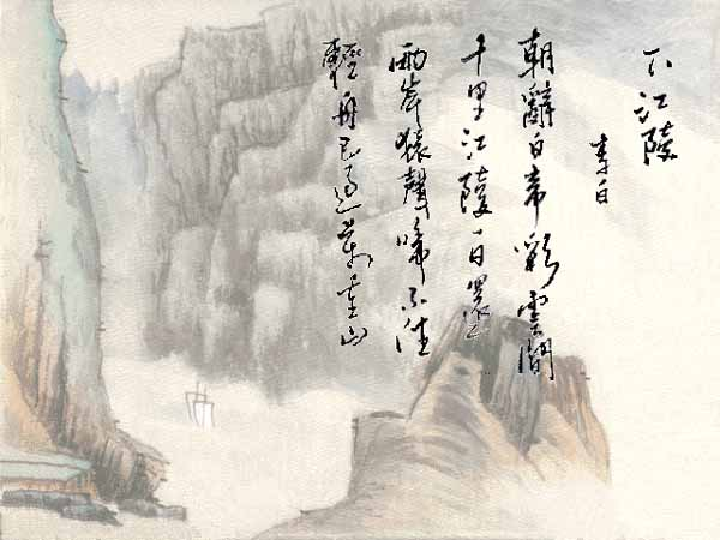 下江陵
李白
朝辭白帝彩雲間
千里江陵一日還
兩岸猿聲啼不住
輕舟已過萬重山